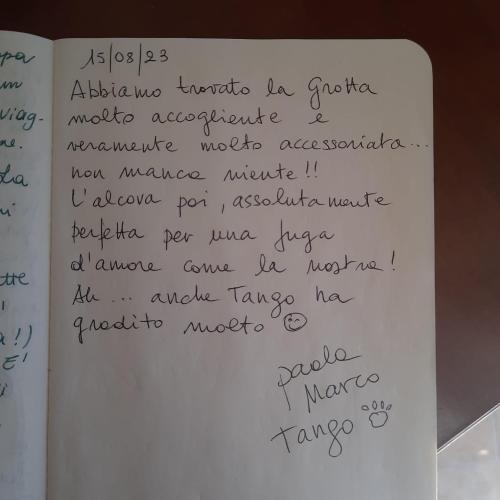 15/08/23
Abbiamo trovato la Grotta
molto accogliente e
veramente molto accessoriata...
non manca niente!!
L'alcova poi, assolutamente
perfetta per una fuga
d'amore come la nostra!
Ah... anche Tango ha
gradito molto
paola
Marco
Tango
ppa
viag-
ne.
La
ni
ette
a!)
E'